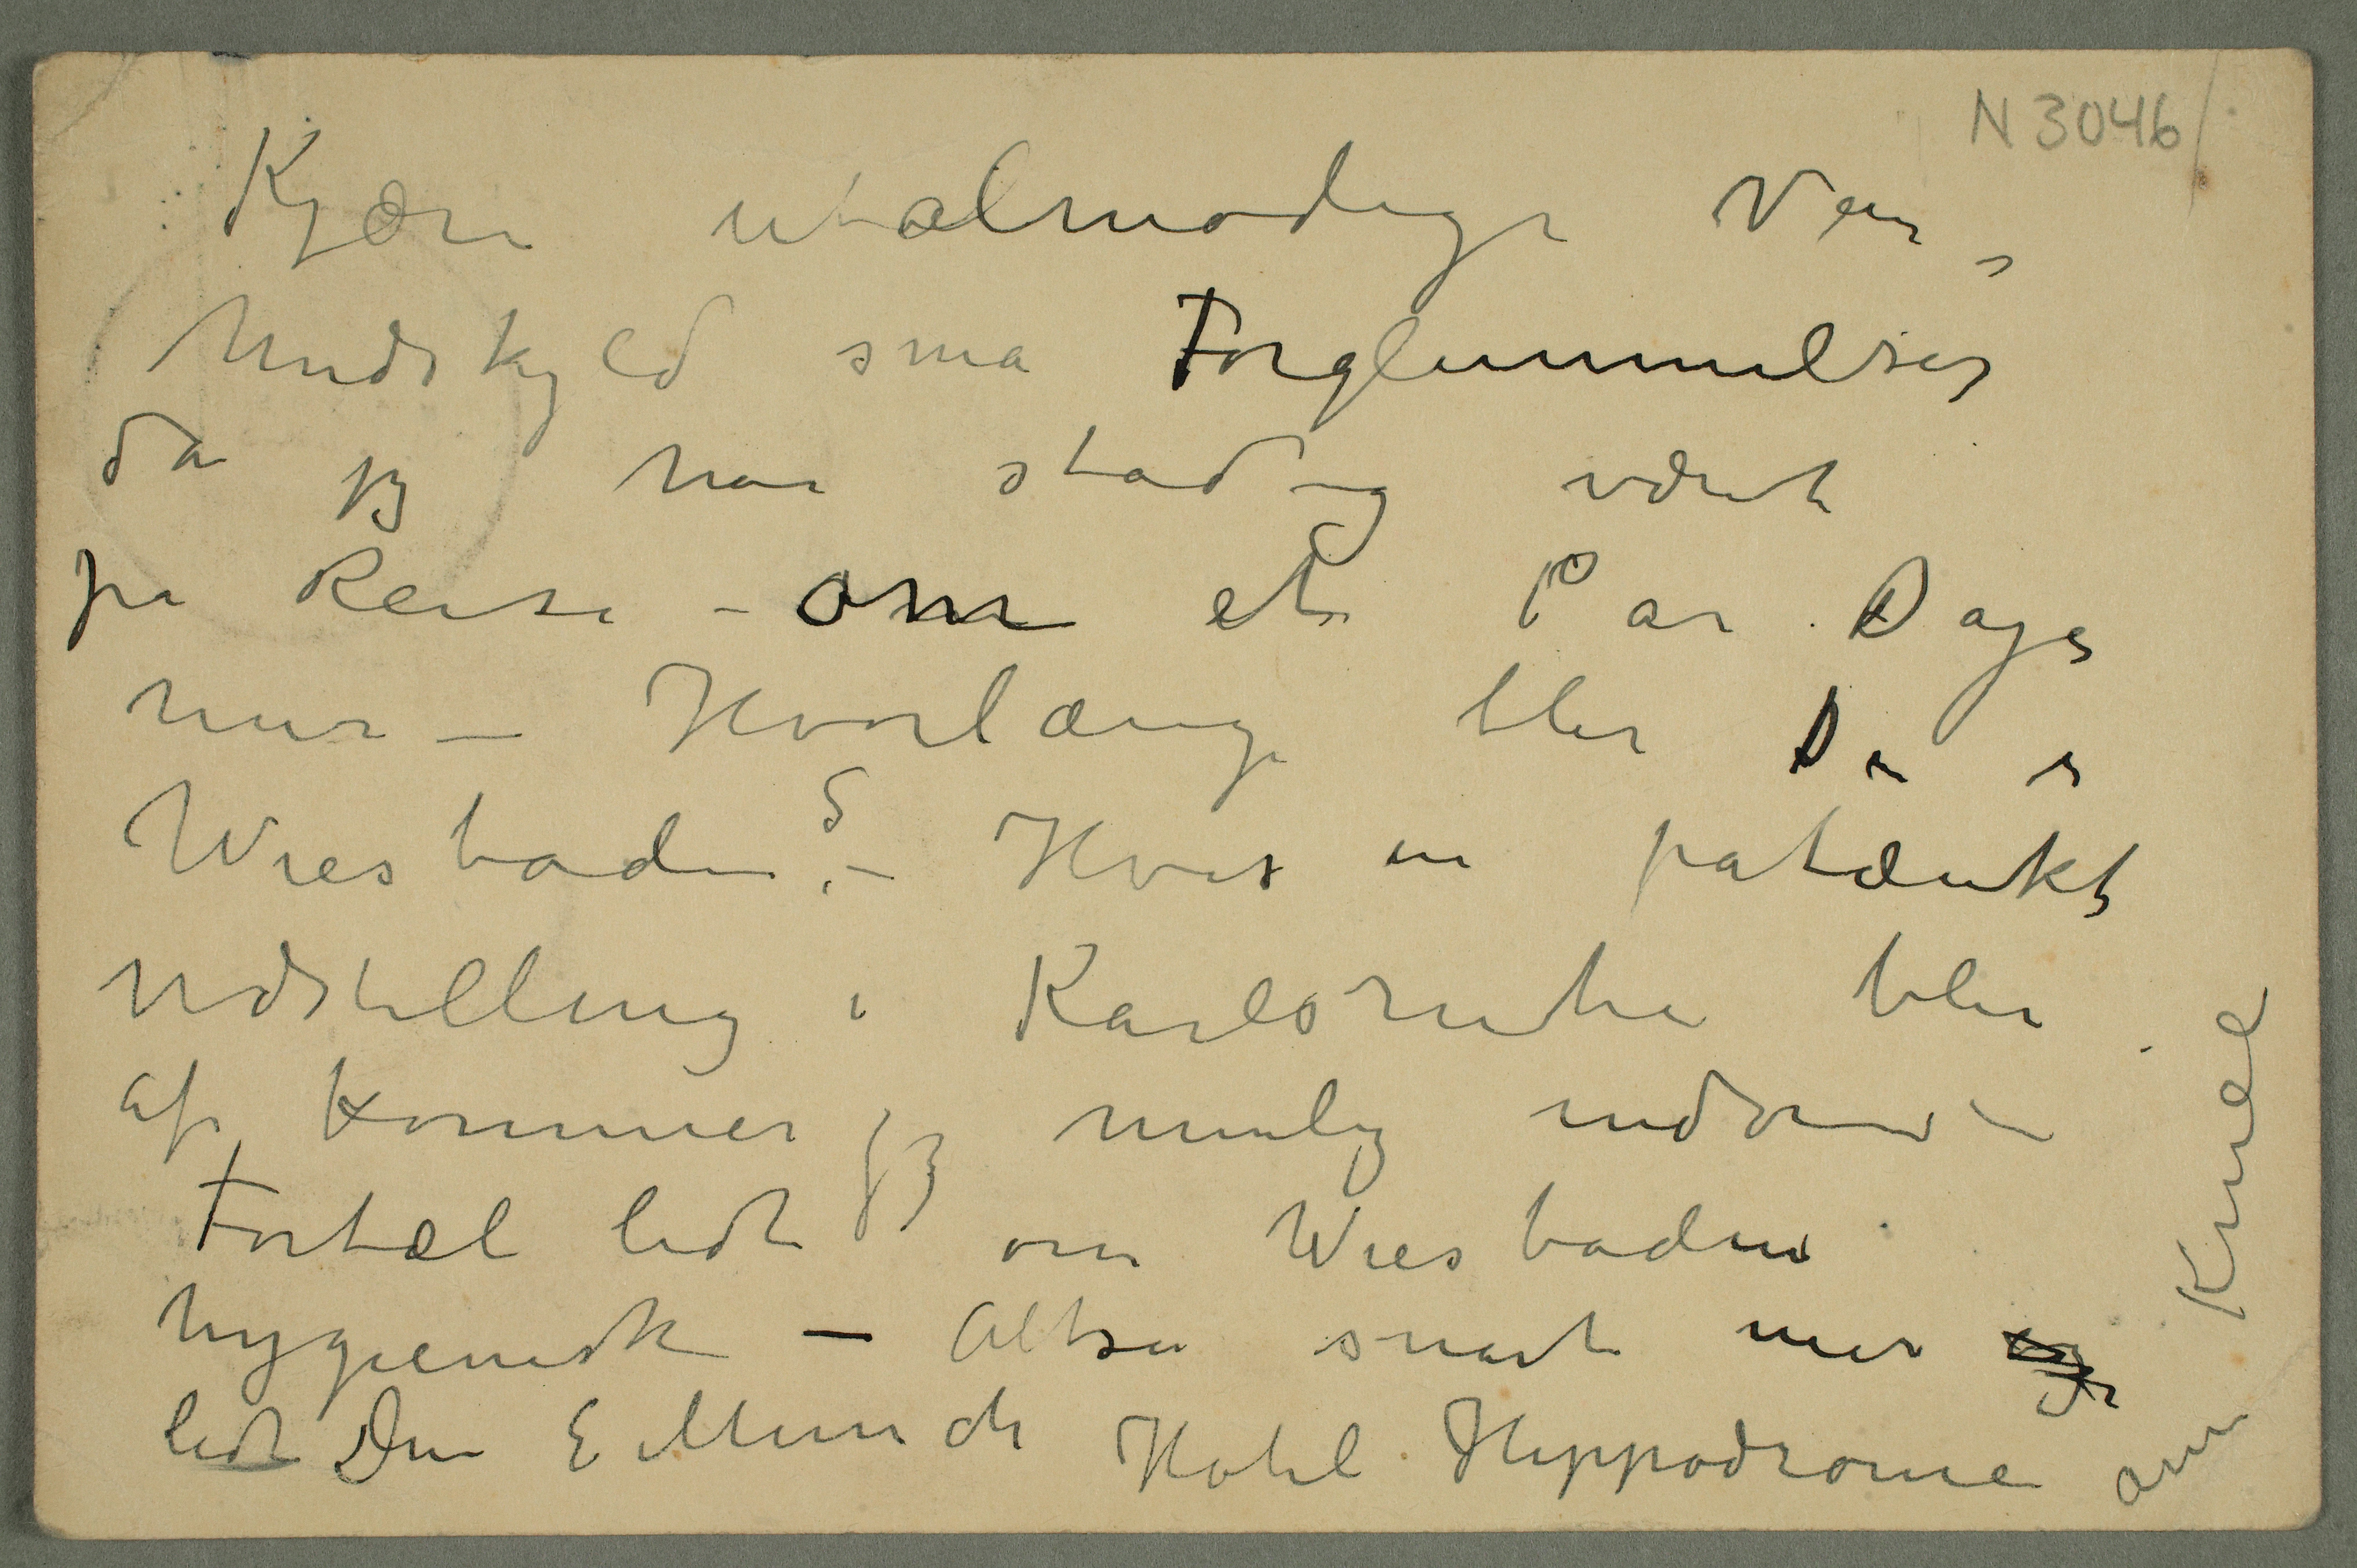 N 3046
Kjære utålmodige Ven,
Undskyld små Forglemmelser
da jeg har stadig været
på Reise – om et Par Dage
mer – Hvorlænge blir De i
Wiesbaden? – Hvis en påtænkt
Udstilling i Karlsruhe blir
af kommer jeg mulig indom –
Fortæl lidt om Wiesbaden
hygienisk – Altså snart mer
lidt Din E Munch Hotel Hippodrome
am Knee